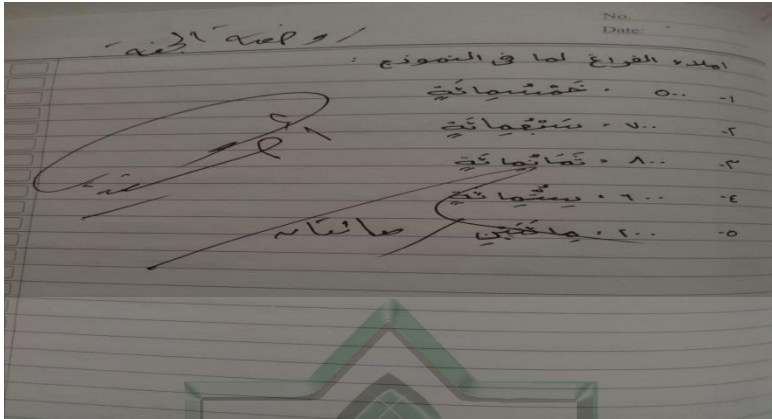 No.
Date:
روضة الجنة
املاء الفراغ لما في النموذج :
١- ٥٠٠ = خَمْسُمِائَةٍ
٢- ٧٠٠ = سَبْعُمِائَةٍ
٣- ٨٠٠ = ثَمَانُمِائَةٍ
٤- ٦٠٠ = سِتُّمِائَةٍ
٥- ٢٠٠ = مِائَتَيْنِ مائتان